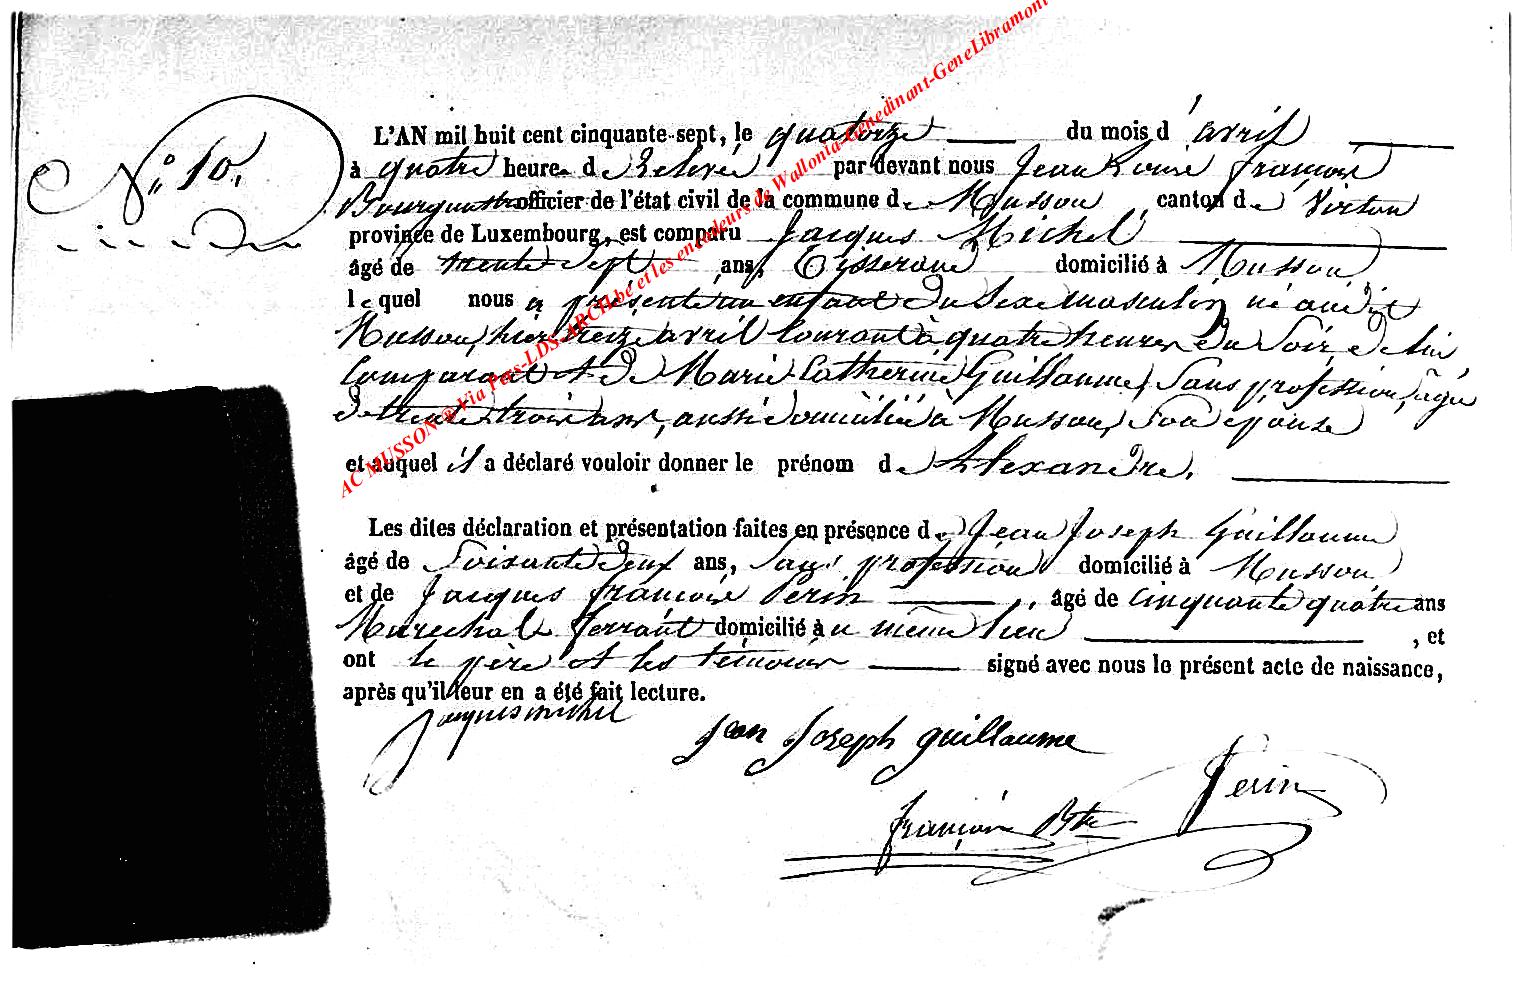 N.° 10.
L'AN mil huit cent cinquante-sept, le quatorze du mois d'avril
à quatre heure de Relevé par devant nous Jean Louis François
officier de l'état civil de la commune de Musson, canton de Virton
province de Luxembourg, est comparu Jacques Michel,
âgé de trente sept ans, Tisserand domicilié à Musson
lequel nous a présenté un enfant du Sexe masculin né audit
Musson, hier treize avril courant à quatre heures du Soir, de lui
Comparant et de Marie Catherine Guillaume, Sans profession, âgée
de trente trois ans, aussi domiciliée à Musson, Son épouse
et auquel il a déclaré vouloir donner le prénom de Alexandre.
Les dites déclaration et présentation faites en présence de Jean Joseph Guillaume
âgé de Soixante deux ans, Sans profession domicilié à Musson
et de Jacques françois Perin, âgé de cinquante quatre ans
Marechal ferrant domicilié au même lieu, et
ont le père et les témoins signé avec nous le présent acte de naissance,
après qu'il leur en a été fait lecture.
Jacques michel
Jean Joseph guillaume
Perin
françois Btre
AC MUSSON ® Via Pres-LDS-ARCH.be et les encodeurs de Wallonia-Genedinant-GeneLibramont